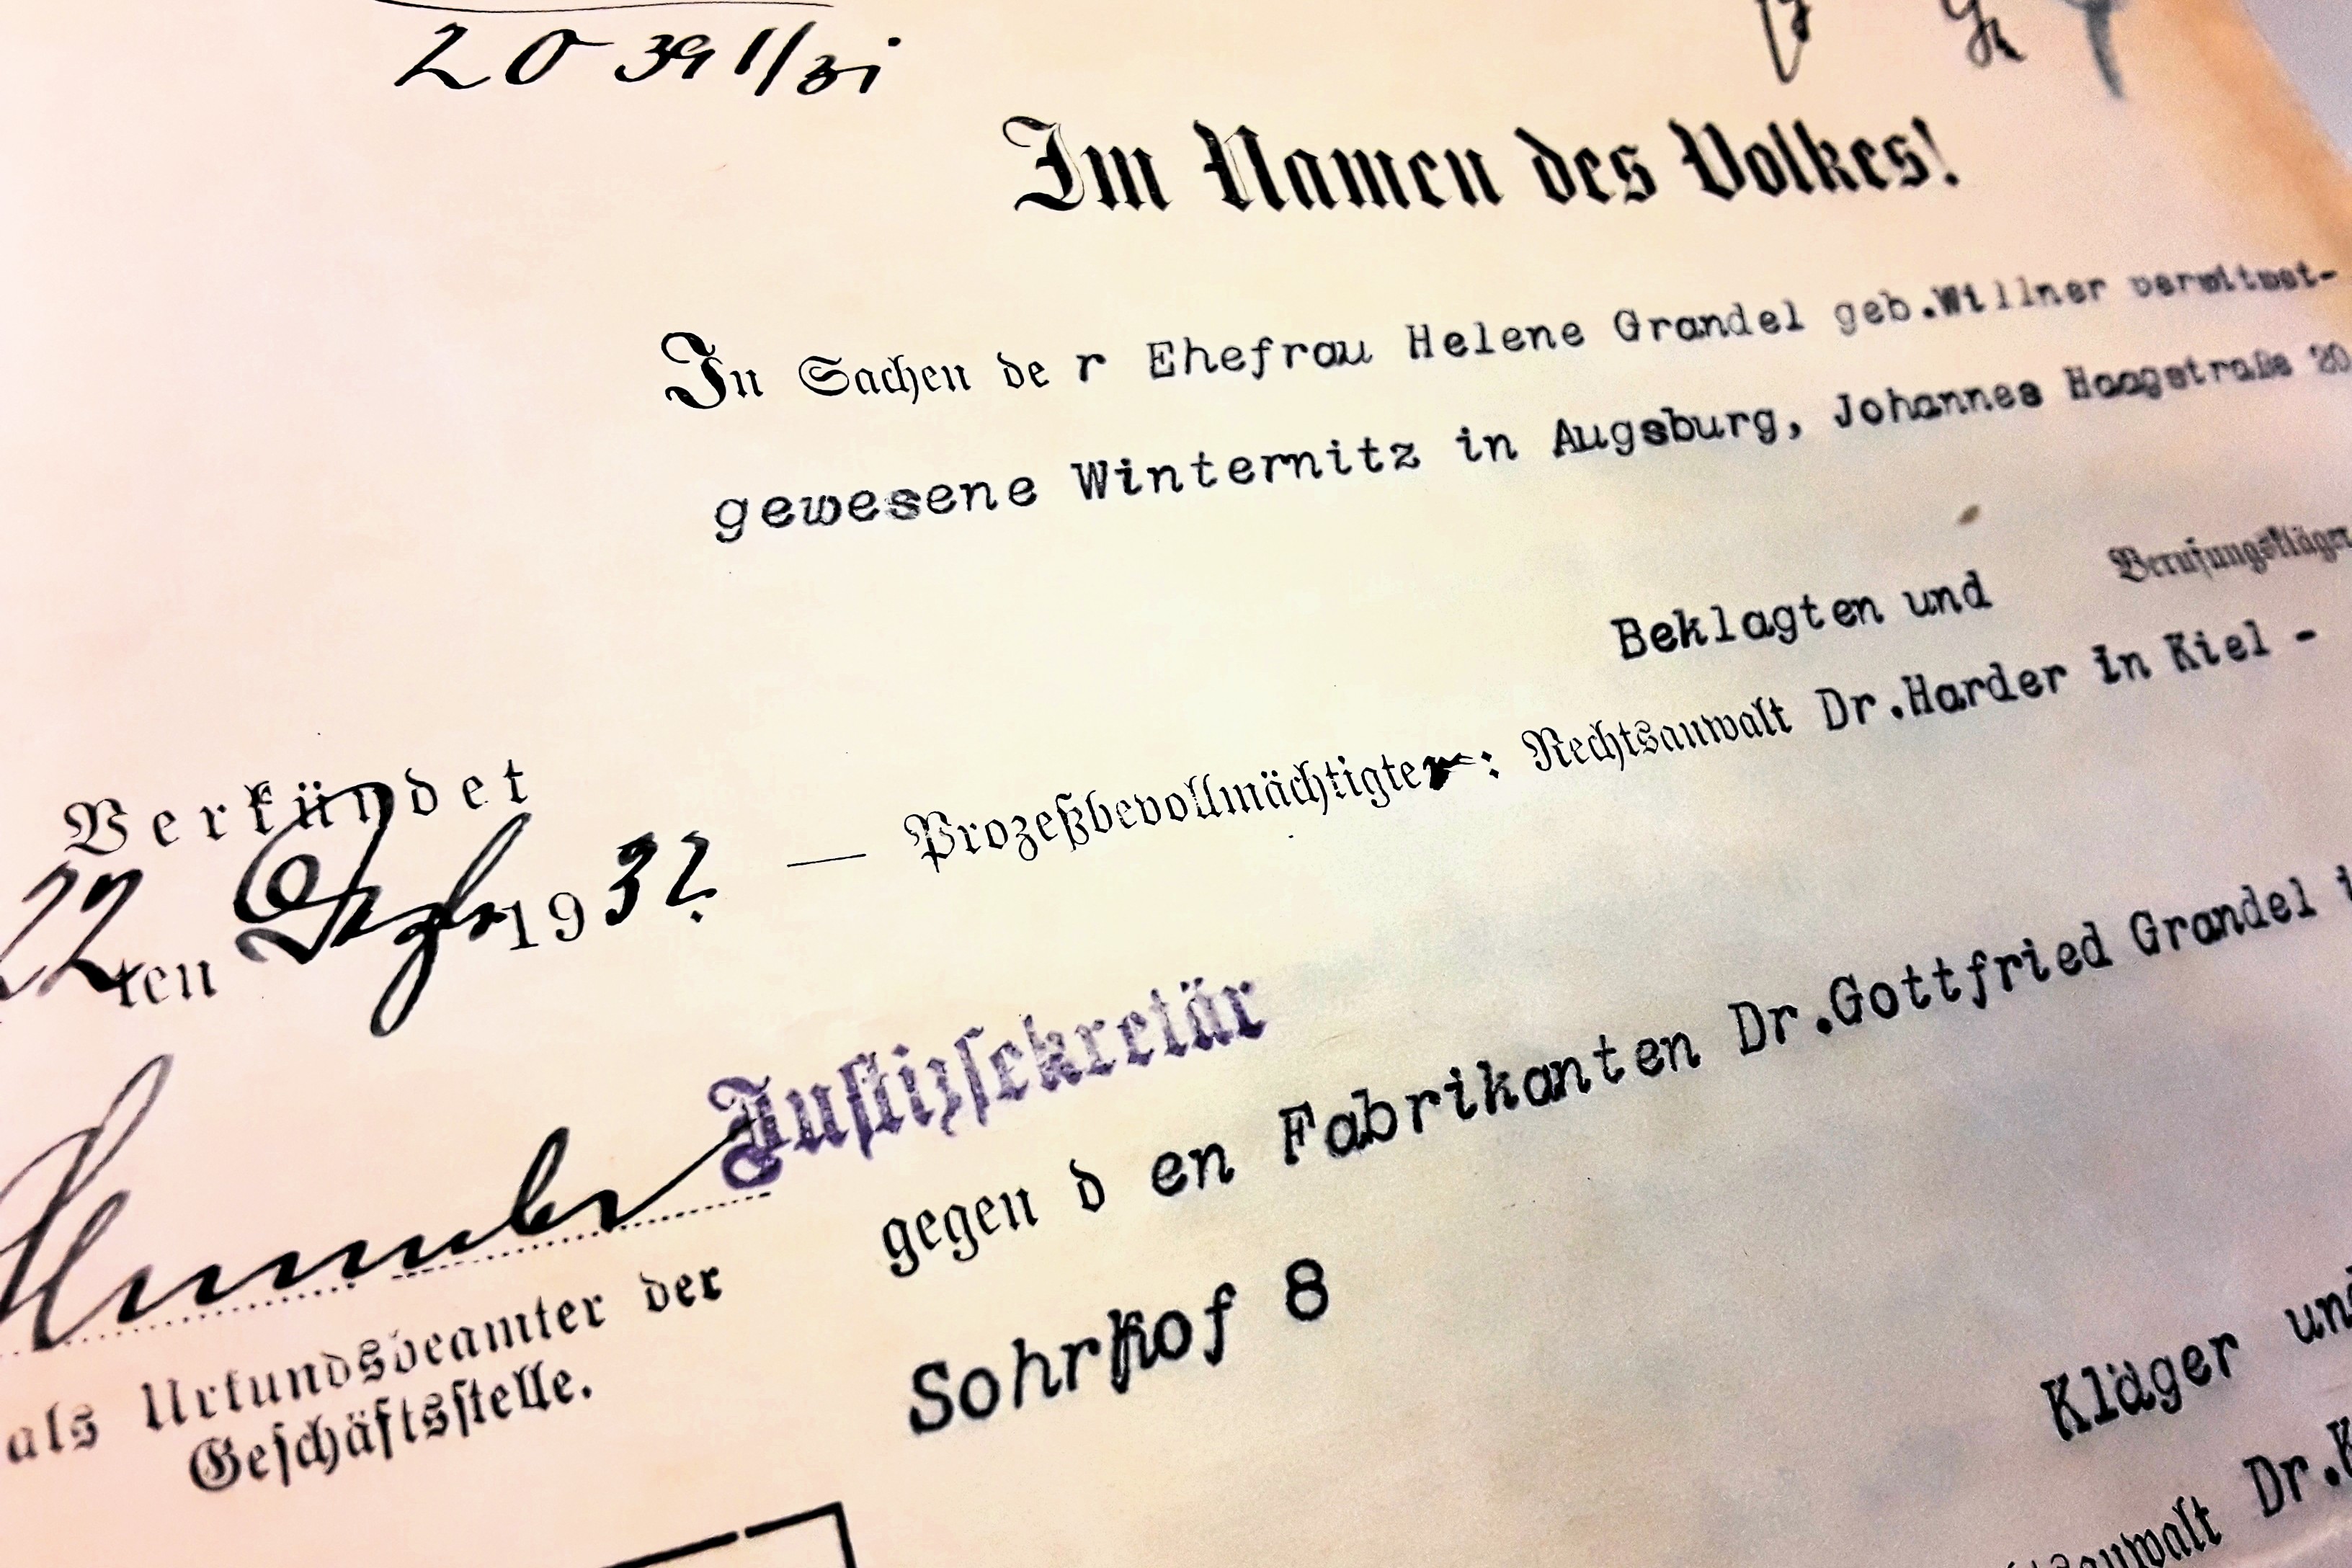 2 O 391/31
Im Namen des Volkes!
In Sachen de r Ehefrau Helene Grandel geb.Willner verwitwet-
gewesene Winternitz in Augsburg, Johannes Haagstraße 20
Beklagten und Berufungskläger
— Prozeßbevollmächtigter: Rechtsanwalt Dr.Harder in Kiel -
Verkündet
22ten Dezbr 1932.
Justizsekretär
als Urkundsbeamter der
Geschäftsstelle.
gegen d en Fabrikanten Dr.Gottfried Grandel i
Sohrhof 8
Kläger und
anwalt Dr.K